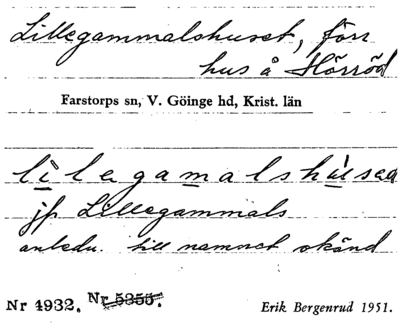 Lillegammalshuset, förr
hus å Hörröd
Farstorps sn, V. Göinge hd, Krist. län
lilegamalshúsəd
jfr Lillegammals
anledn. till namnet okänd
Nr 4932. Nr 5355.
Erik Bergenrud 1951.